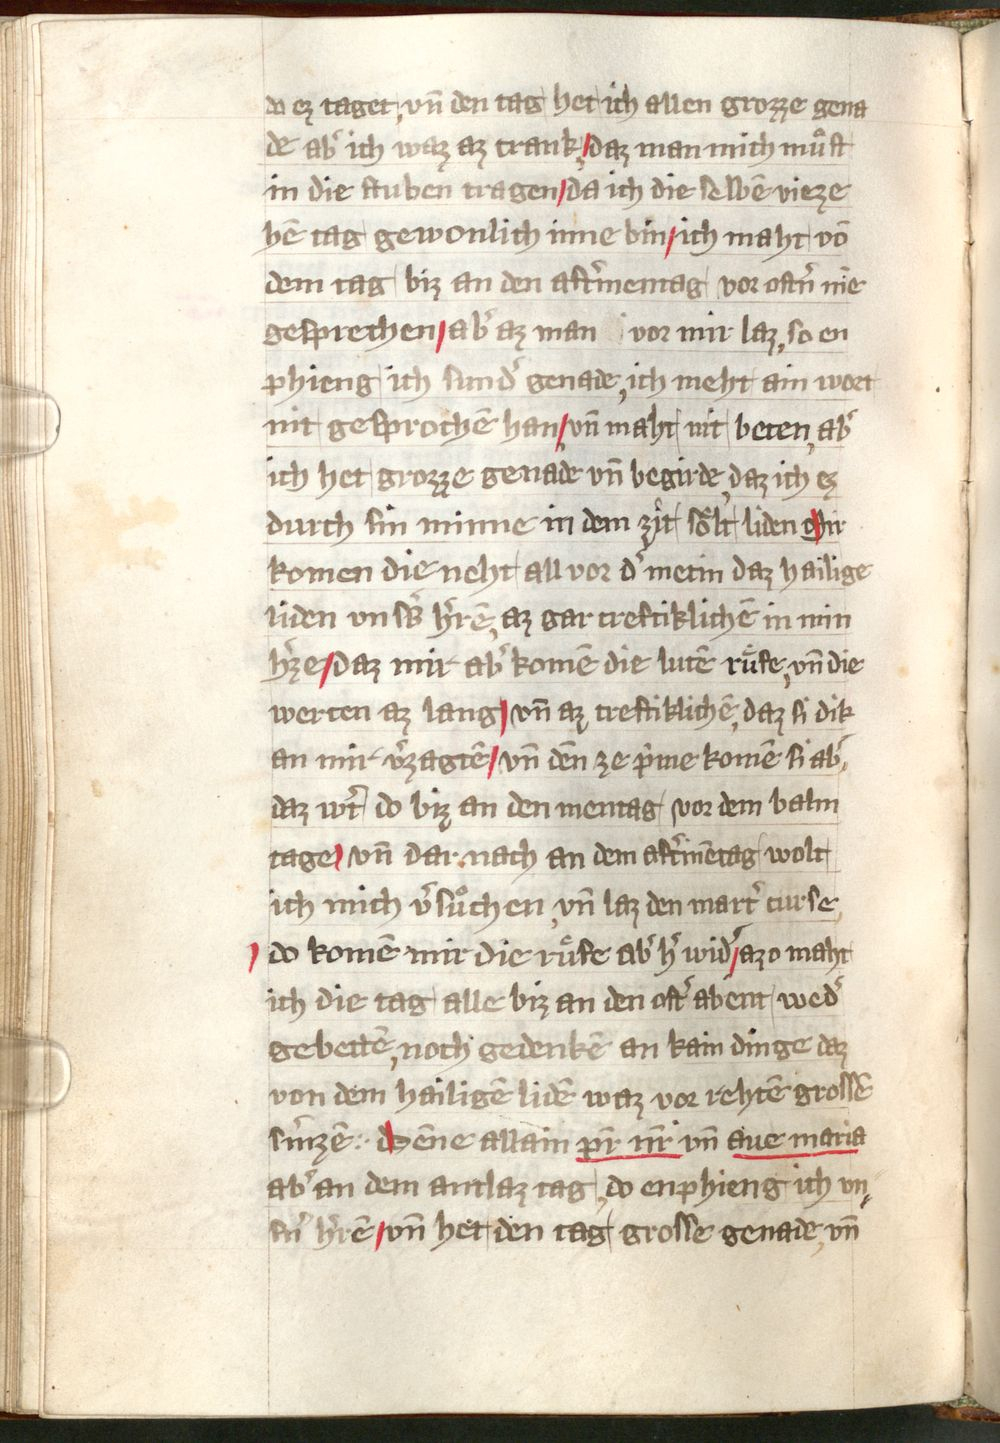 do ez taget, vn̄ den tag het ich allen grozze gena
de ab͛ ich waz az crank, / daz man mich mu̍ͦst
in die stuben tragen / da ich die selbē vieze
hē tag gewonlich inne bin / ich maht vō
dem tag biz an den aft͛mentag vor ostn͛ nie
gesprechen / ab͛ az man vor mir laz, so en
phieng ich sund͛ genade, ich meht ain wort
nit gesprochē han / vn̄ maht nit beten, ab͛
ich het grozze genade vn̄ begirde, daz ich ez
durch sin minne in dem zit solt liden Mir
komen die neht all vor d͛ metin daz hailige
liden vn s͛s h͛rē, az gar creftiklichē in min
h͛ze / daz mir ab͛ komē die lutē rüfe, vn̄ die
werten az lang / vn̄ az creftiklichē, daz si dik
an mir v͛zagtē / vn̄ den ze p͛me komē si ab͛,
daz w͛t do biz an den mentag vor dem balm
tage / vn̄ dar nach an dem aft͛mētag wolt
ich mich v͛sůchen, vn̄ laz den mart͛ curse,
/ do komē mir die rüfe ab͛ h͛ wid͛ / azo maht
ich die tag alle biz an den ost͛ abent wed͛
gebettē, noch gedenkē an kain dinge daz
von dem hailigē lidē waz vor rehtē grossē
sm͛zē. Dēne allain pr̄ nr̄ vn̄ aue maria
ab͛ an dem antlaz tag, do enphieng ich vn„
sn͛ h͛rē / vn̄ het den tag grosse genade, vn̄